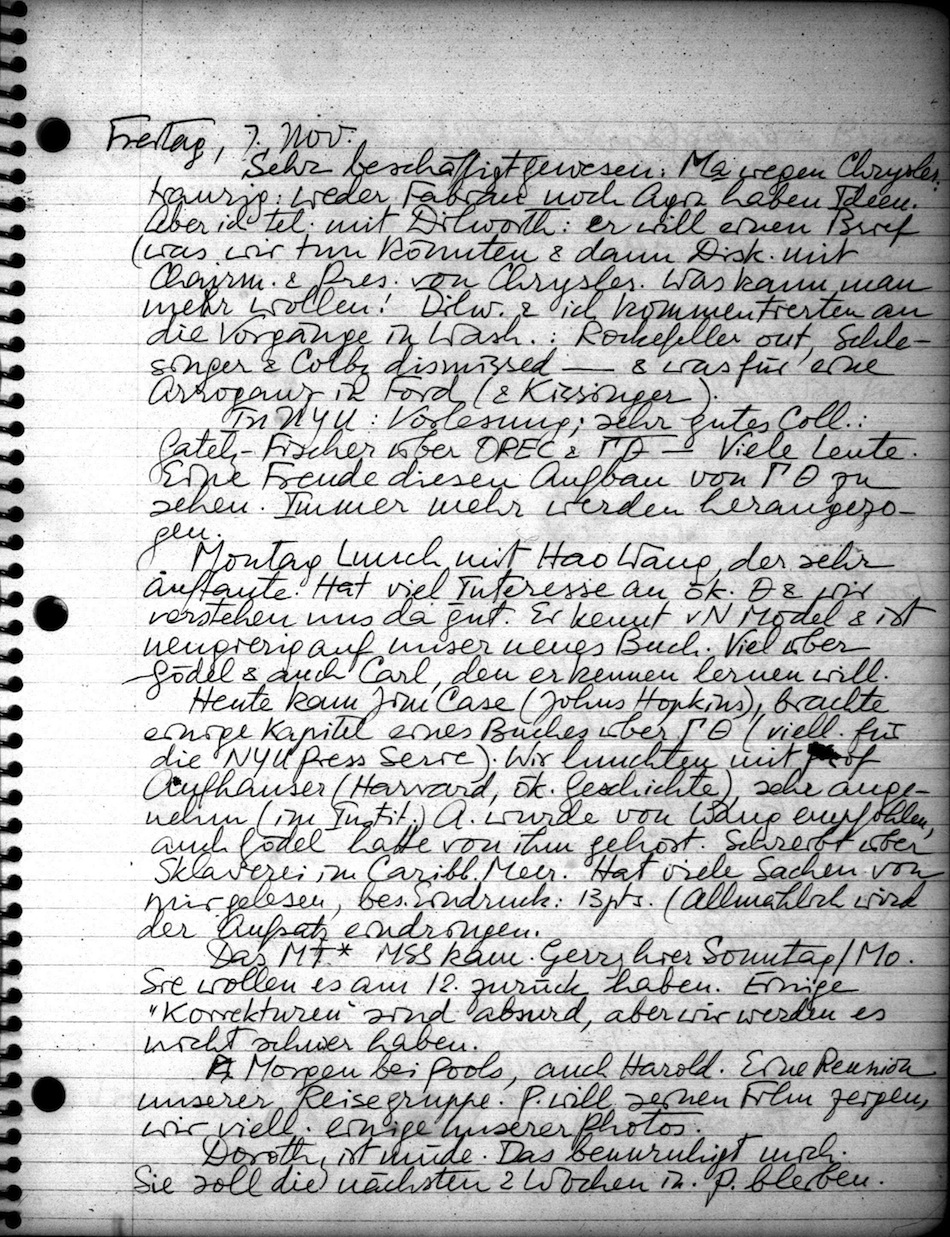 Freitag, 7. Nov.
Sehr beschäftigt gewesen: Ma wegen Chrysler
traurig: weder Fabian noch Agra haben Ideen.
Aber ich tel. mit Dilworth: er will einen Brief
(was wir tun könnten & dann Disk. mit
Chairm. & Pres. von Chrysler. Was kann man
mehr wollen! Dilw. & ich kommentierten an
die Vorgänge in Wash.: Rockefeller out, Schle-
singer & Colby dismissed — & was für eine
Arroganz in Ford (& Kissinger).
In NYU: Vorlesung; sehr gutes Coll.:
Gately-Fischer über OPEC & ΓΘ — Viele Leute.
Eine Freude diesen Aufbau von ΓΘ zu
sehen. Immer mehr werden herangezo-
gen.
Montag Lunch mit Hao Wang, der sehr
auftaute. Hat viel Interesse an ök. Θ & wir
verstehen uns da gut. Er kennt vN Model & ist
neugierig auf unser neues Buch. Viel über
Gödel & auch Carl, den er kennen lernen will.
Heute kam Jim Case (Johns Hopkins), brachte
einige Kapitel eines Buches über ΓΘ (viell. für
die NYU Press Serie). Wir lunchten mit Prof
Aufhauser (Harvard, ök. Geschichte), sehr ange-
nehm (im Instit.) A. wurde von Wang empfohlen,
auch Gödel hatte von ihm gehört. Schreibt über
Sklaverei im Caribb. Meer. Hat viele Sachen von
mir gelesen, bes. Eindruck: 13 pts. (Allmählich wird
der Aufsatz eindringen.
Das MT* MSS kam. Gerry hier Sonntag/Mo.
Sie wollen es am 12. zurück haben. Einige
"Korrekturen" sind absurd, aber wir werden es
nicht schwer haben.
Morgen bei Pools, auch Harold. Eine Reunion
unserer Reisegruppe. P. will seinen Film zeigen,
wir viell. einige unserer Photos.
Dorothy ist müde. Das beunruhigt mich.
Sie soll die nächsten 2 Wochen in P. bleiben.